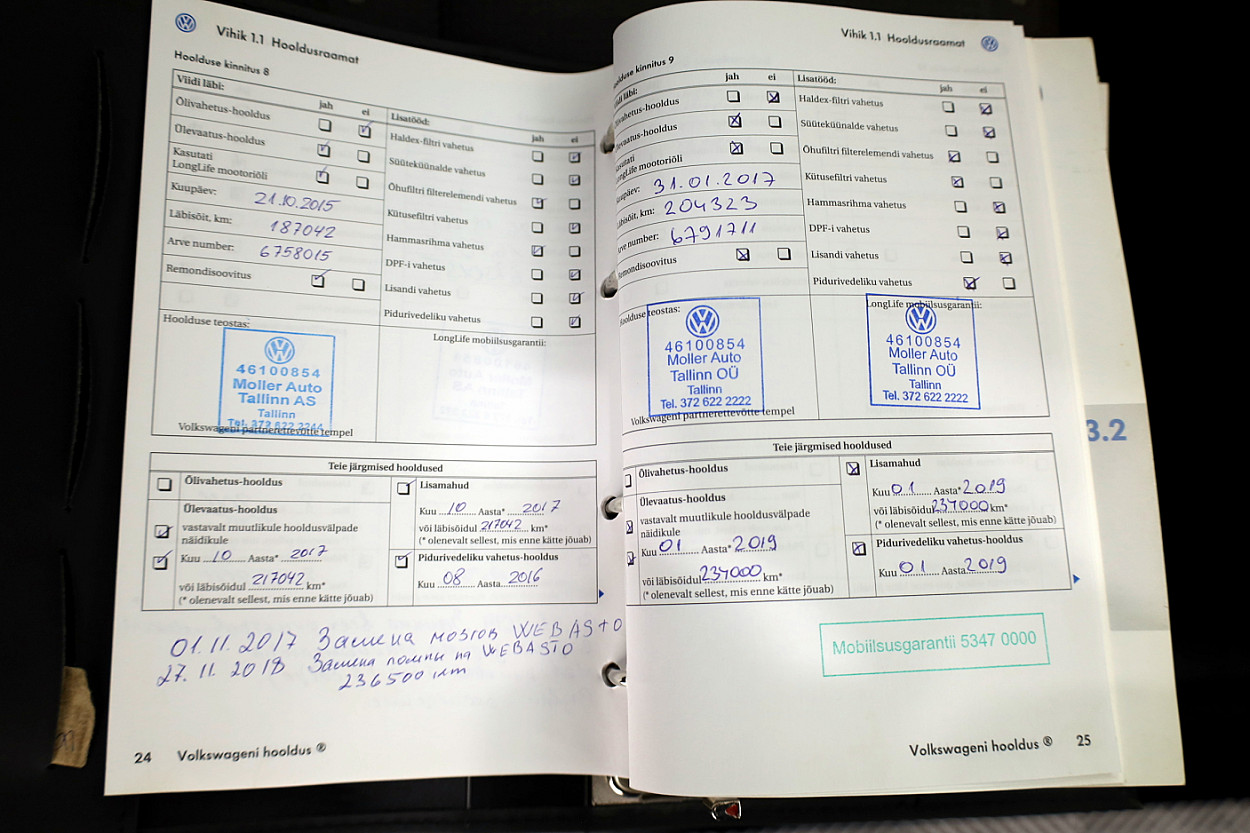 Vihik 1.1 Hooldusraamat
Hoolduse kinnitus 8
Viidi läbi:
jah ei
Õlivahetus-hooldus
Ülevaatus-hooldus
Kasutati
LongLife mootoriõli
Kuupäev: 21.10.2015
Läbisõit, km: 187042
Arve number: 6758015
Remondisoovitus
Lisatööd:
jah ei
Haldex-filtri vahetus
Süüteküünalde vahetus
Õhufiltri filterelemendi vahetus
Kütusefiltri vahetus
Hammasrihma vahetus
DPF-i vahetus
Lisandi vahetus
Pidurivedeliku vahetus
Hoolduse teostas:
46100854
Moller Auto
Tallinn AS
Tallinn
Tel. 372 622 2244
Volkswageni partnerettevõtte tempel
LongLife mobiilsusgarantii:
Teie järgmised hooldused
Õlivahetus-hooldus
Ülevaatus-hooldus
vastavalt muutlikule hooldusvälpade
näidikule
Kuu 10 Aasta* 2017
või läbisõidul 217042 km*
(* olenevalt sellest, mis enne kätte jõuab)
Lisamahud
Kuu 10 Aasta* 2017
või läbisõidul 217042 km*
(* olenevalt sellest, mis enne kätte jõuab)
Pidurivedeliku vahetus-hooldus
Kuu 08 Aasta 2016
01.11.2017 Замена мозгов WEBASTO
27.11.2018 Замена помпы на WEBASTO
236500 км
24 Volkswageni hooldus ®
Vihik 1.1 Hooldusraamat
kinnitus 9
jah ei
Ülevaatus-hooldus
LongLife mootoriõli
31.01.2017
Läbisõit, km: 204323
number: 6791711
Remondisoovitus
Lisatööd:
jah ei
Haldex-filtri vahetus
Süüteküünalde vahetus
Õhufiltri filterelemendi vahetus
Kütusefiltri vahetus
Hammasrihma vahetus
DPF-i vahetus
Lisandi vahetus
Pidurivedeliku vahetus
Hoolduse teostas:
46100854
Moller Auto
Tallinn OÜ
Tallinn
Tel. 372 622 2222
Volkswageni partnerettevõtte tempel
LongLife mobiilsusgarantii:
46100854
Moller Auto
Tallinn OÜ
Tallinn
Tel. 372 622 2222
Teie järgmised hooldused
Õlivahetus-hooldus
Ülevaatus-hooldus
vastavalt muutlikule hooldusvälpade
näidikule
Kuu 01 Aasta* 2019
või läbisõidul 237000 km*
(* olenevalt sellest, mis enne kätte jõuab)
Lisamahud
Kuu 01 Aasta* 2019
või läbisõidul 237000 km*
(* olenevalt sellest, mis enne kätte jõuab)
Pidurivedeliku vahetus-hooldus
Kuu 01 Aasta 2019
Mobiilsusgarantii 5347 0000
Volkswageni hooldus ® 25
3.2